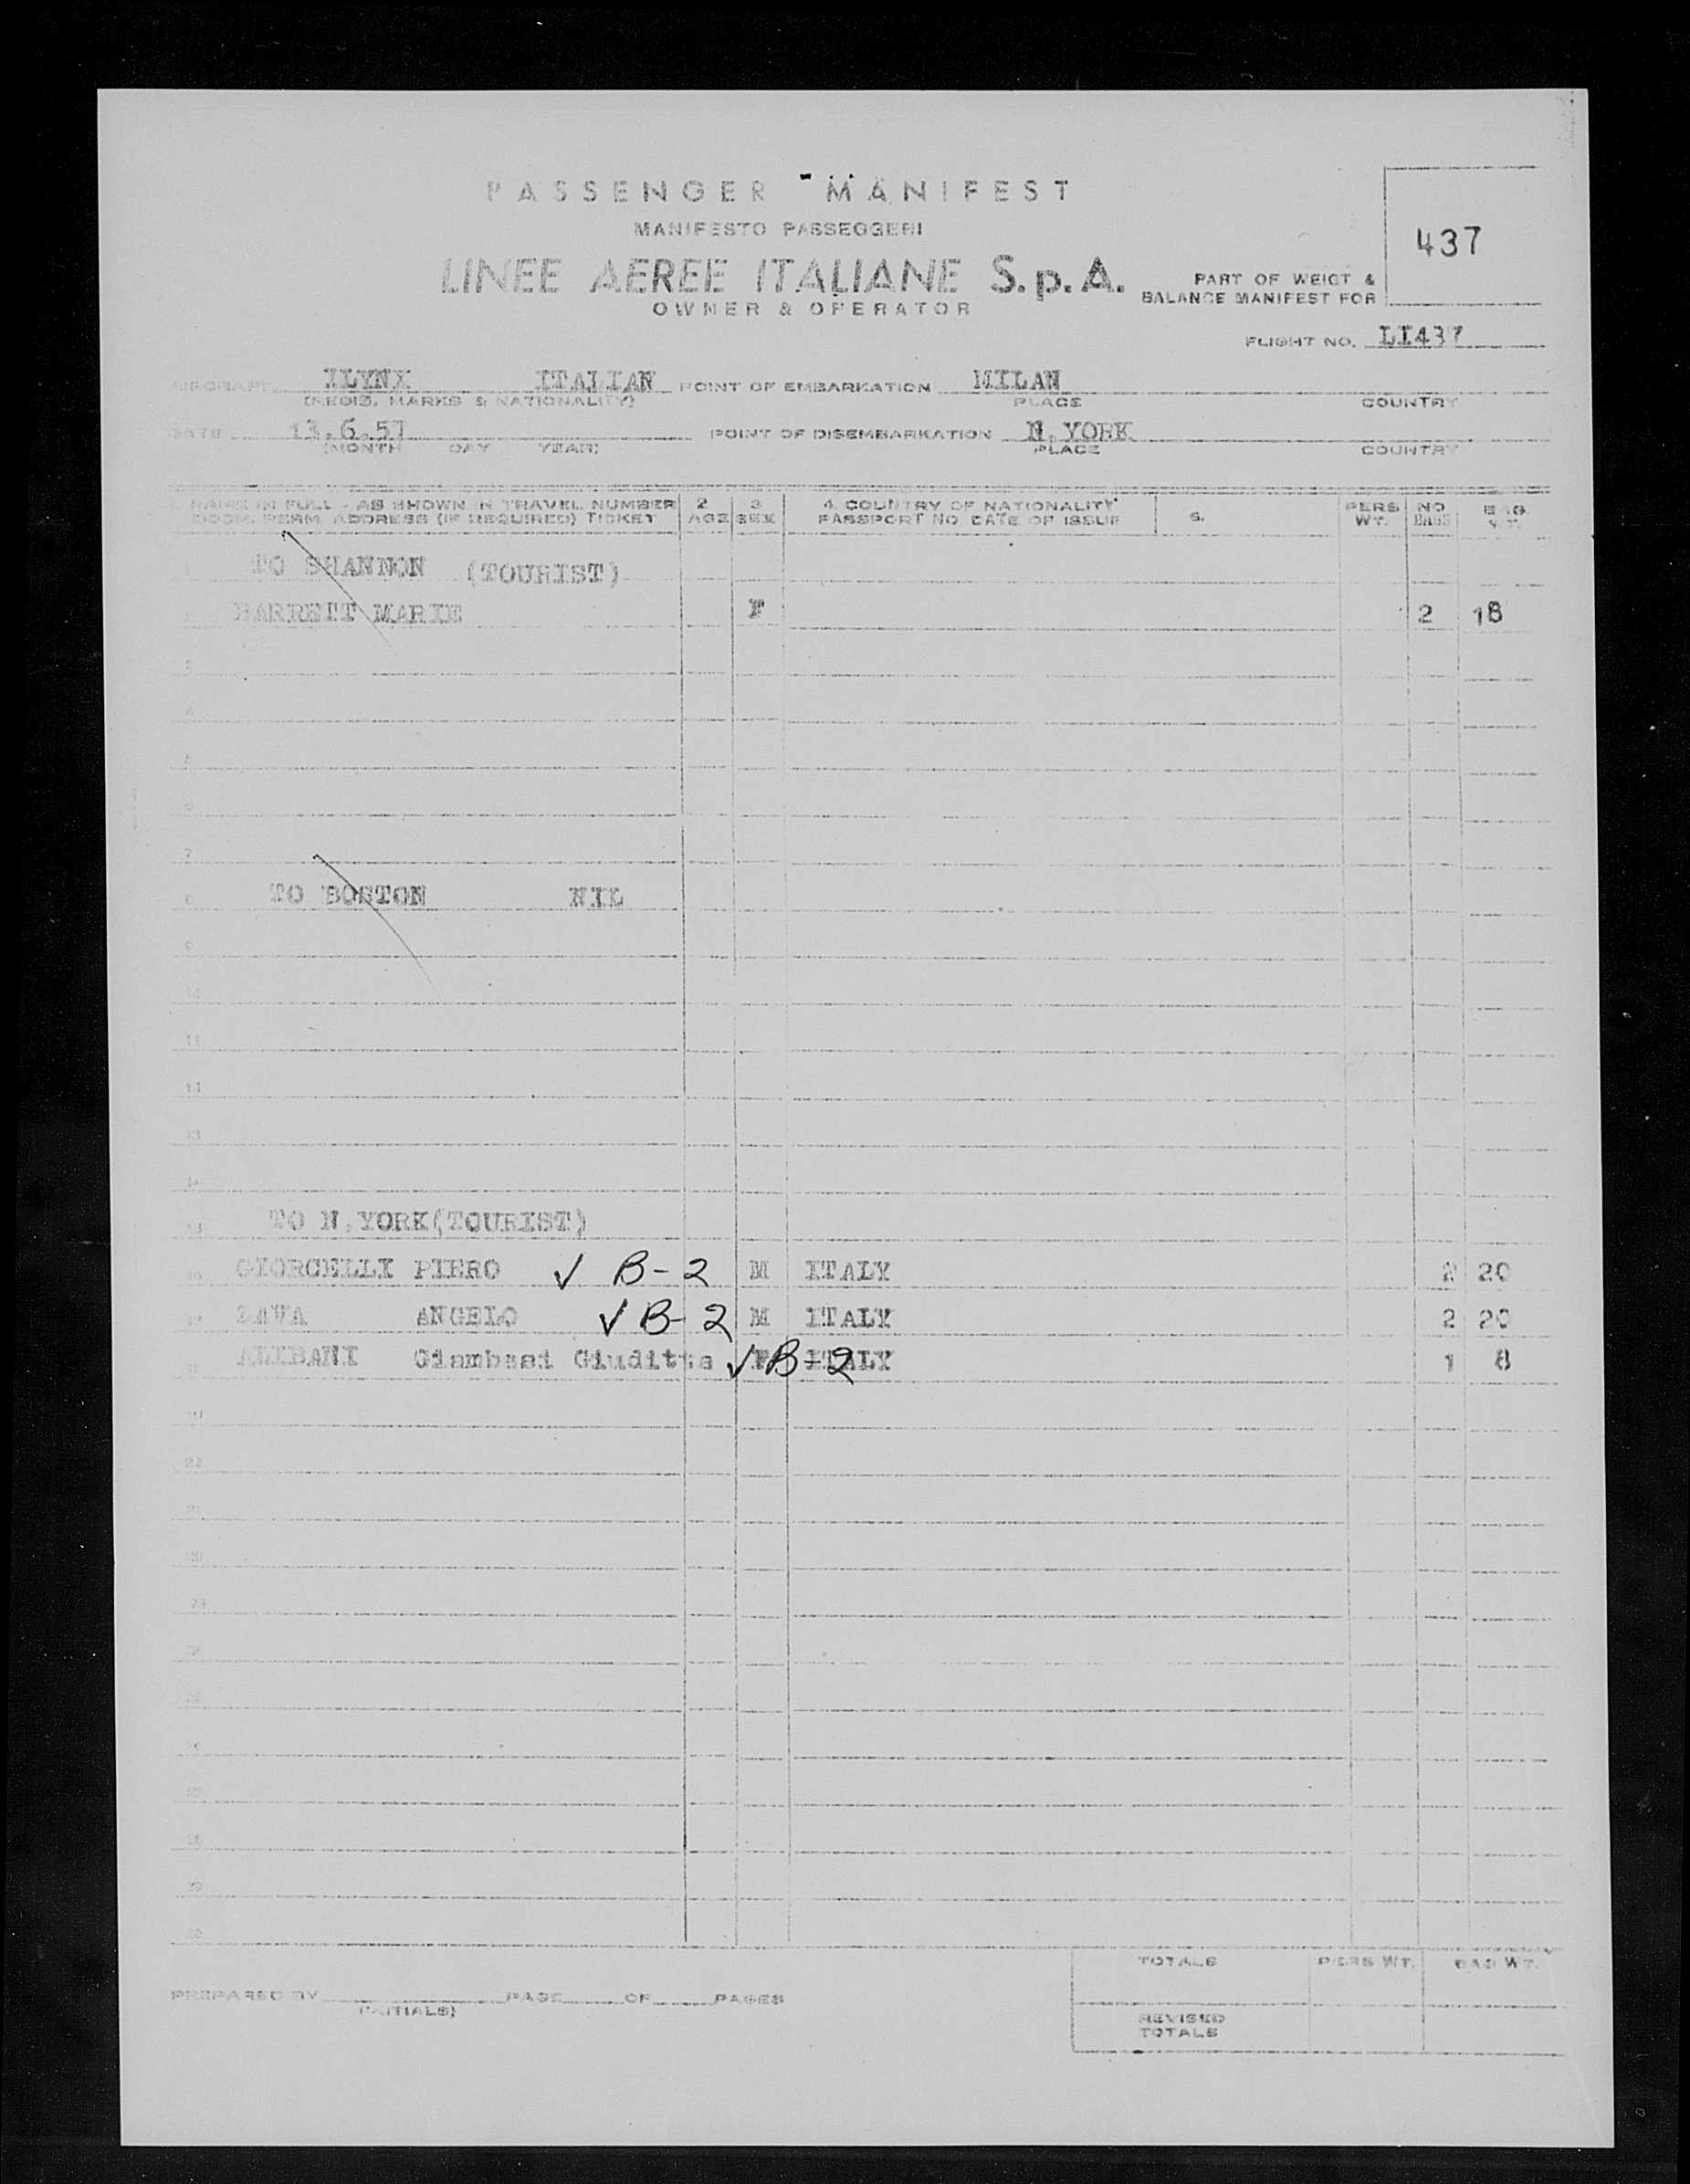 PASSENGER MANIFEST
MANIFESTO PASSEGGERI
LINEE AEREE ITALIANE S.p.A.
OWNER & OPERATOR
437
PART OF WEIGT &
BALANCE MANIFEST FOR
FLIGHT NO. LI437
AIRCRAFT ILYNX ITALIAN POINT OF EMBARKATION MILAN
(REGIS. MARKS & NATIONALITY) PLACE COUNTRY
DATE 13.6.57 POINT OF DISEMBARKATION N.YORK
(MONTH DAY YEAR) PLACE COUNTRY
NAME IN FULL - AS SHOWN IN TRAVEL NUMBER 2 3 4. COUNTRY OF NATIONALITY PERS NO BAG.
DOCM. PERM. ADDRESS (IF REQUIRED) TICKET AGE SEX PASSPORT NO. DATE OF ISSUE 5. WT. BAGS WT.
TO SHANNON (TOURIST)
BARRETT MARIE F 2 18
3
4
5
6
7
8 TO BOSTON NIL
9
10
11
13
14
TO N.YORK(TOURIST)
GIORCELLI PIERO ✓ B-2 M ITALY 2 20
ZAVA ANGELO ✓ B-2 M ITALY 2 20
ALIBANI Giambasi Giuditta ✓ F B-2 ITALY 1 8
TOTALS PERS WT. BAG WT.
PREPARED BY PAGE OF PAGES
(INITIALS)
REVISED
TOTALS